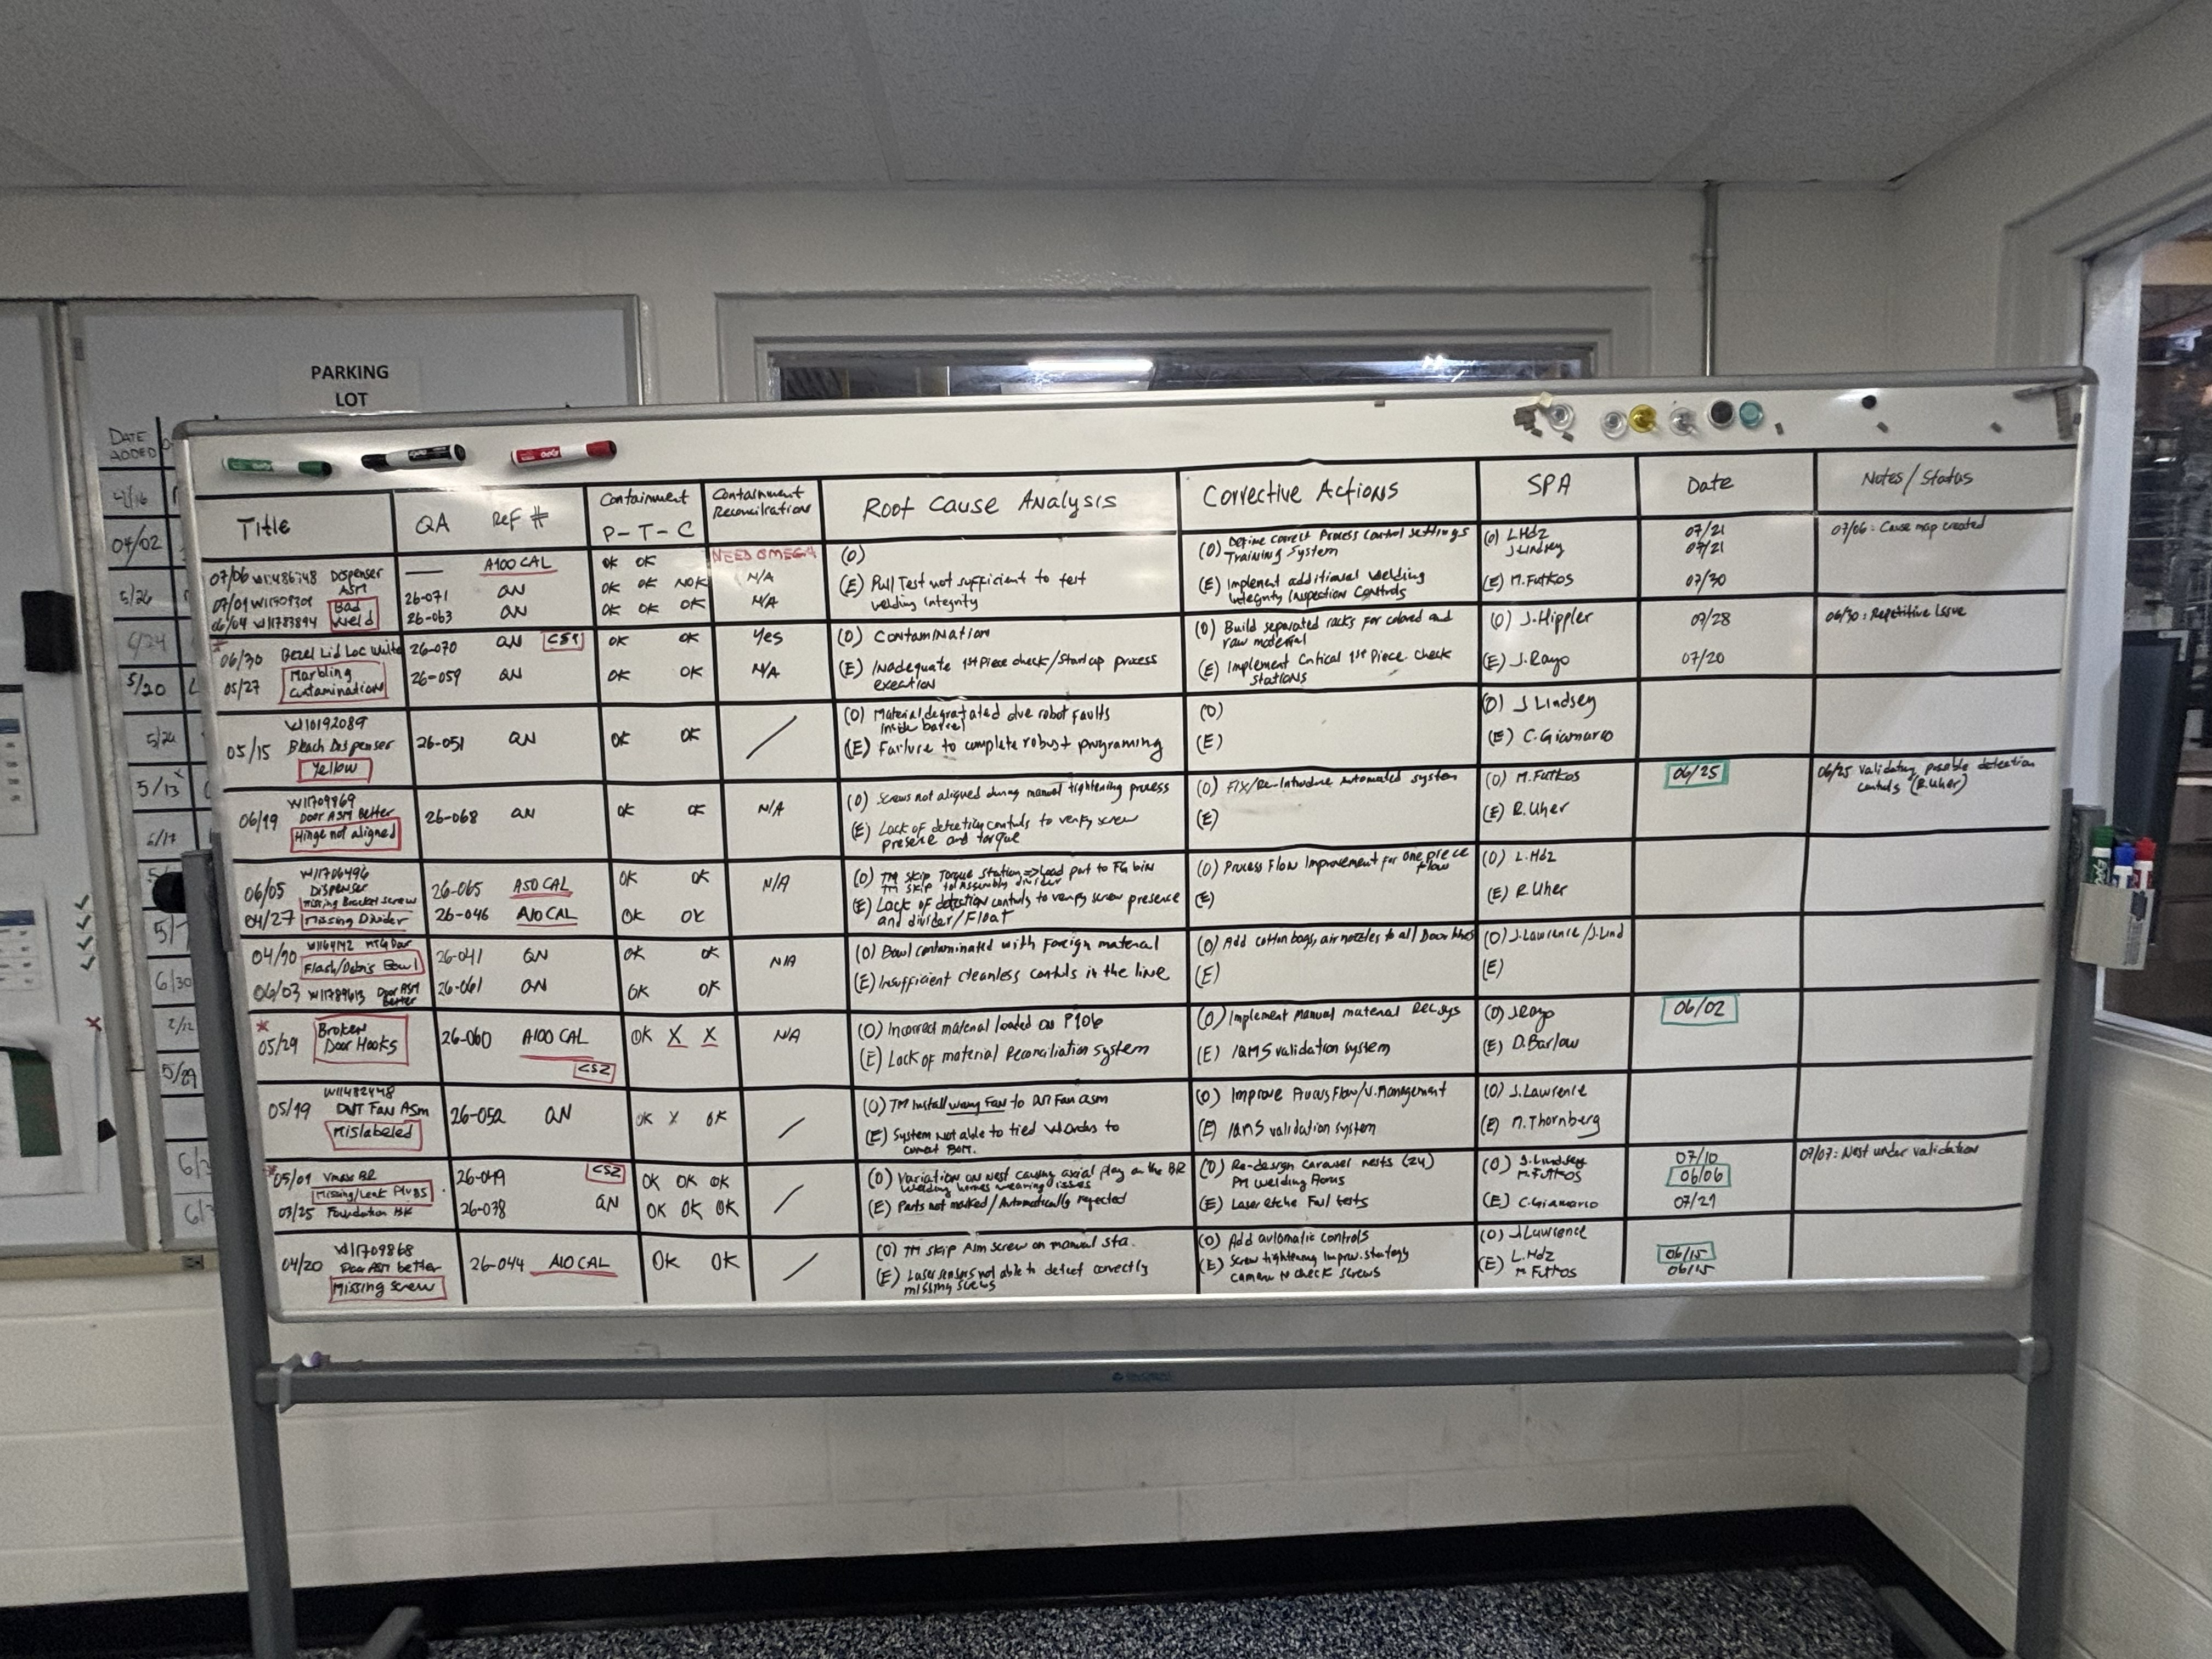 PARKING
LOT
DATE
ADDED
04/02
5/26
6/24
5/20
5/26
5/13
6/17
6/30
2/12
5/29
Title
QA Ref #
Containment
P - T - C
Containment
Root Cause Analysis
Corrective Actions
SPA
Date
Notes/Status
07/06 Dispenser
ASM
— A100 CAL
OK OK
NEED OMEGA
(O)
(O) Define correct Process control settings
Training System
(O) L.Hdz
J.Lindsey
07/21
07/21
07/06: Cause map created
07/01
Bad
Weld
26-071 QN
OK OK NOK
N/A
(E) Pull Test not sufficient to test
welding integrity
(E) Implement additional welding
Integrity Inspection Controls
(E) M.Futkos
07/30
06/04 W11783894
26-063 QN
OK OK OK
N/A
06/30 Bezel Lid Loc White
26-070 QN CS1
OK OK
Yes
(O) Contamination
(O) Build separated racks for colored and
raw material
(O) J.Hippler
07/28
06/30: Repetitive Issue
05/27
Marbling
contamination
26-059 QN
OK OK
N/A
(E) Inadequate 1st Piece check/Startup process
execution
(E) Implement Critical 1st Piece. Check
stations
(E) J.Rayo
07/20
W10192089
05/15 Bleach Dispenser
Yellow
26-051 QN
OK OK
/
(O) Material degratated due robot faults
inside barrel
(E) Failure to complete robust programing
(O)
(E)
(O) J Lindsey
(E) C.Giamarco
W11709869
06/19 Door ASM Better
Hinge not aligned
26-068 QN
OK OK
N/A
(O) Screws not aligned during manual tightening process
(E) Lack of detection controls to verify screw
presence and torque
(O) Fix/Re-Introduce Automated system
(E)
(O) M.Futkos
(E) R.Uher
06/25
06/25 Validating possible detection
controls (R.Uher)
W11706496
06/05 Dispenser
Missing Bracket screw
26-065 A50 CAL
OK OK
N/A
04/27 Missing Divider
26-046 A10 CAL
OK OK
(O) TM skip Torque Station => Load part to FG bin
TM skip to Assembly divider
(E) Lack of detection controls to verify screw presence
and divider/Float
(O) Process Flow Improvement for one piece
flow
(E)
(O) L.Hdz
(E) R.Uher
Flash/Debris Bowl
26-041 QN
OK OK
N/A
06/03 W11789613 Door ASM
Better
26-061 QN
OK OK
(O) Bowl contaminated with Foreign material
(E) Insufficient cleanless controls in the line
(O) Add cotton bags, air nozzles to all Door lines
(E)
(O) J.Lawrence/J.Lind
(E)
05/29
Broken
Door Hooks
26-060 A100 CAL
CS2
OK X X
N/A
(O) Incorrect material loaded on P106
(E) Lack of material Reconciliation system
(O) Implement Manual material Rec.sys
(E) IQMS validation system
(O) J.Rayo
(E) D.Barlow
06/02
W11482448
05/19 Fan ASM
Mislabeled
26-052 QN
OK X OK
/
(O) TM install wrong Fan to Fan asm
(E) System Not able to tied W.Orders to
correct BOM.
(O) Improve Process Flow/V.Management
(E) IQMS validation system
(O) J.Lawrence
(E) M.Thornberg
05/01 Vmax BR
Missing/Leak Plugs
03/25 Foundation BK
26-049 CS2
OK OK OK
26-038 QN
OK OK OK
/
(O) Variation on Nest causing axial play on the BR
welding horns wearing issues
(E) Parts not marked/Automatically rejected
(O) Re-design Carousel nests (24)
PM welding Horns
(E) Laser etche Fail tests
(O) J.Lindsey
M.Futkos
(E) C.Giamarco
07/10
06/06
07/21
07/07: Nest under validation
W11709868
04/20 Door ASM better
Missing screw
26-044 A10 CAL
OK OK
/
(O) TM skip Asm screw on manual sta.
(E) Laser sensors not able to detect correctly
missing screws
(O) Add automatic controls
(E) Screw tightening Improv. strategy
camera to check screws
(O) J.Lawrence
(E) L.Hdz
M.Futkos
06/15
06/15